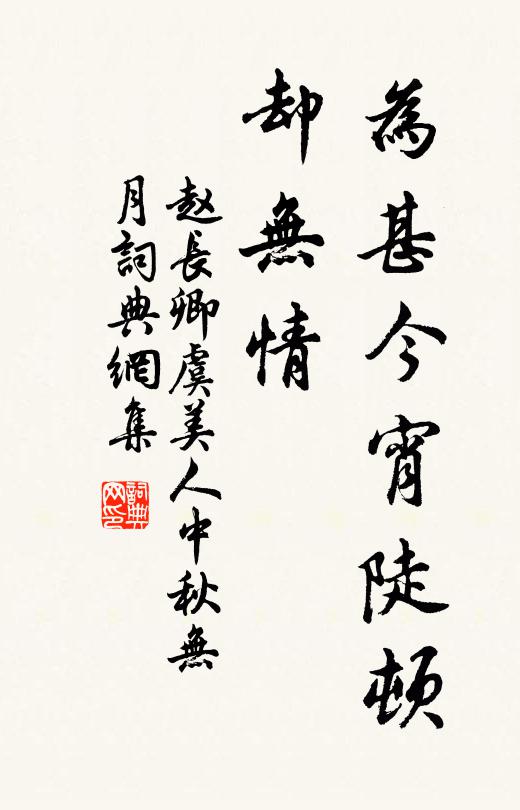 為甚今宵陡頓
却無情
赵長卿虞美人中秋無
月詞典網集
詞典
网印